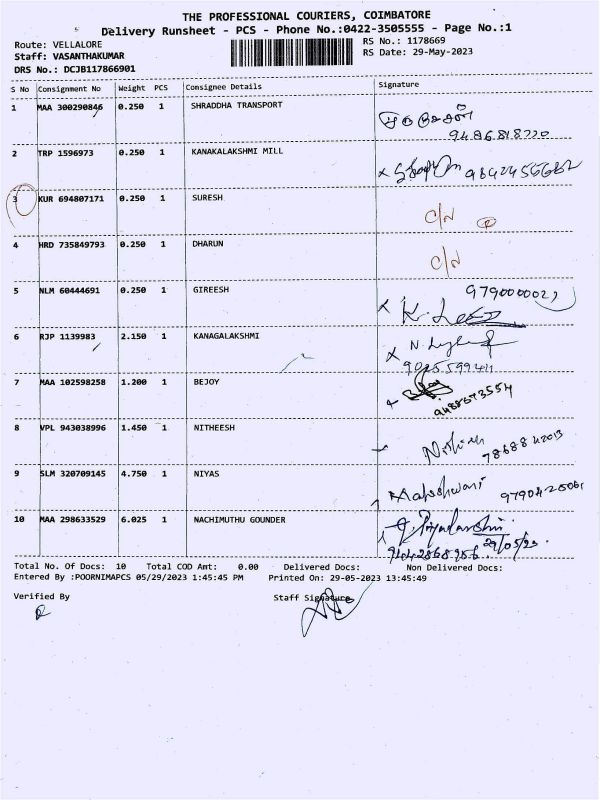 THE PROFESSIONAL COURIERS, COIMBATORE
Delivery Runsheet - PCS - Phone No.:0422-3505555 - Page No.:1
Route: VELLALORE
RS No.: 1178669
Staff: VASANTHAKUMAR
RS Date: 29-May-2023
DRS No.: DCJB117866901
S No Consignment No Weight PCS Consignee Details Signature
1 MAA 300290846 0.250 1 SHRADDHA TRANSPORT
9486818770
2 TRP 1596973 0.250 1 KANAKALAKSHMI MILL
3 KUR 694807171 0.250 1 SURESH C/N
4 HRD 735849793 0.250 1 DHARUN C/N
5 NLM 60444691 0.250 1 GIREESH
6 RJP 1139983 2.150 1 KANAGALAKSHMI
7 MAA 102598258 1.200 1 BEJOY
8 VPL 943038996 1.450 1 NITHEESH
9 SLM 320709145 4.750 1 NIYAS Maheshwari
10 MAA 298633529 6.025 1 NACHIMUTHU GOUNDER
29/05/23
Total No. Of Docs: 10 Total COD Amt: 0.00 Delivered Docs: Non Delivered Docs:
Entered By :POORNIMAPCS 05/29/2023 1:45:45 PM Printed On: 29-05-2023 13:45:49
Verified By Staff Signature